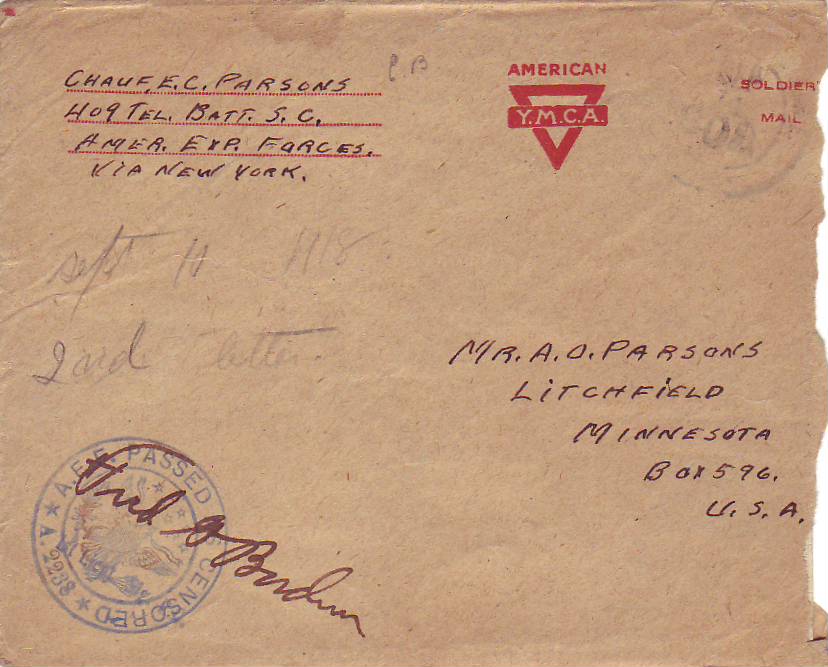 CHAUF. E. C. PARSONS
409 TEL. BATT. S. C.
AMER. EXP. FORCES.
VIA NEW YORK.
P.B
AMERICAN
Y.M.C.A.
SOLDIER'
MAIL
Sept 11 1918
2nd letter
MR. A. O. PARSONS
LITCHFIELD
MINNESOTA
BOX 596.
U. S. A.
A.E.F. PASSED CENSORED
A. 2238
Fred G